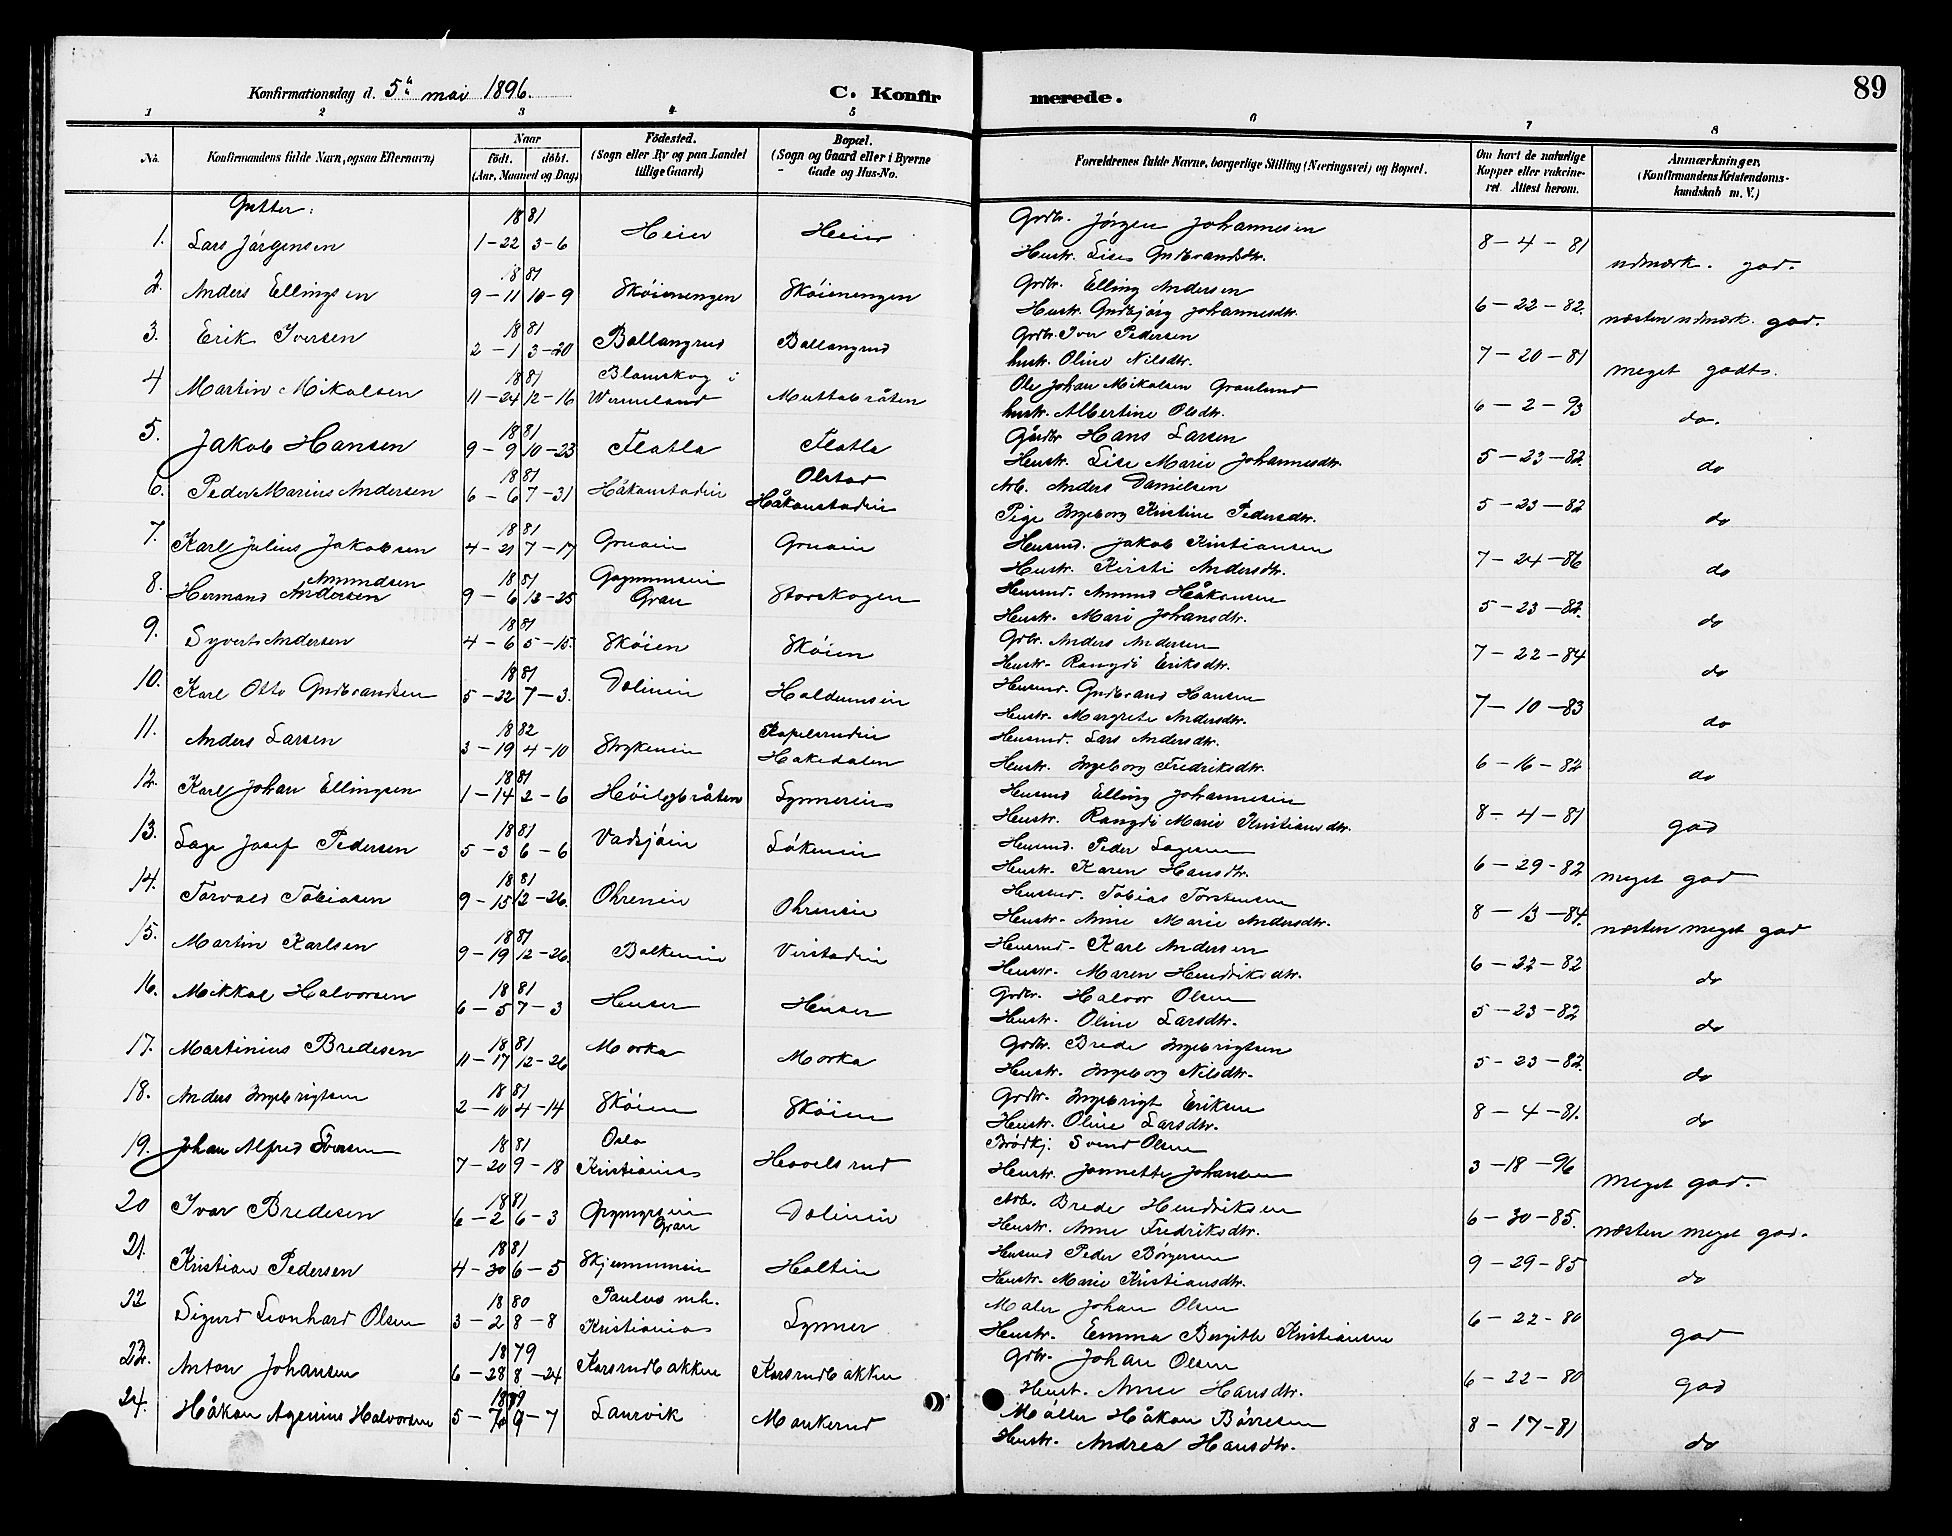 Konfirmationsdag d. 5te mai 1896. C. Konfirmerede. 89
1 2 3 4 5 6 7 8
No. Konfirmandens fulde Navn, ogsaa Efternavn) Naar födt. döbt. (Aar, Maaned og Dag) Födested. (Sogn eller By og paa Landet tillige Gaard) Bopæl. (Sogn og Gaard eller i Byerne Gade og Hus-No. Forældrenes fulde Navne, borgerlige Stilling (Næringsvei) og Bopæl. Om havt de naturlige Kopper eller vaccineret. Attest herom. Anmærkninger. (Konfirmandens Kristendomskundskab m. V.)
Gutter:
1. Lars Jörgensen 1881 1-22 3-6 Heier Heier Grdbr. Jörgen Johannesen
Hustr. Lise Gudbrandsdtr. 8-4-81 udmærk. god.
2. Anders Ellingsen 1881 9-11 10-9 Sköienengen Sköienengen Grdbr. Elling Andersen
Hustr. Gudbjörg Johannesdtr. 6-22-82. næsten udmærk. god.
3. Erik Iversen 1881 2-1 3-20 Ballangrud Ballangrud Grdbr. Iver Pedersen
hustr. Oline Nilsdtr. 7-20-81 meget godts.
4 Martin Mikalsen 1881 11-24 12-16 Blomskog i Wermeland Muttabråten Ole Johan Mikalsen Granlund
hustr. Albertine Olsdtr. 6-2-93 do.
5. Jakob Hansen 1881 9-9 10-23 Flatla Flatla Gårdbr Hans Larsen
Hustr. Lise Marie Johannesdtr. 5-23-82. do
6. Peder Marius Andersen 1881 6-6 7-31 Håkonstadeie Olstad Håkonstadeie Arb. Anders Danielsen
Pige Ingeborg Kristine Pedersdtr. 5-23-82 do
7. Karl Julius Jakobsen 1881 4-21 7-17 Gruaeie Gruaeie Husmd. Jakob Kristiansen
Hustr. Kersti Andersdtr. 7-24-86 do
8. Hermand Andersen Amundsen 1881 9-6 12-25 Gran Storskogen Husmd. Amund Håkonsen
Hustr. Mari Johansdtr. 5-23-82. do
9. Syvert Andersen 1881 4-6 5-15. Sköien Sköien Grdbr. Anders Andersen
Hustr. Rangdi Eriksdtr. 7-22-84 do
10. Karl Otto Gudbrandsen 1881 5-22 7-3. Dolineie Haldumseie Husmd. Gudbrand Hansen
Hustr. Margrete Andersdtr. 7-10-83 do
11. Anders Larsen 1882 3-19 4-10 Strykeneie Kapelsrudeie Hakedalen Husmd. Lars Andersdtr.
Hustr. Ingeborg Fredriksdtr. 6-16-82 do
12. Karl Johan Ellingsen 1881 1-14 2-6 Lynnereie Husmd Elling Johannesen
Hustr. Rangdi Marie Kristiansdtr. 8-4-81 god
13. Lage Josef Pedersen 1881 5-3 6-6 Vadsjöeie Lökeneie Husmd. Peder Lagesen
Hustr. Karen Hansdtr. 6-29-82 meget god
14. Torvald Tobiasen 1881 9-15 12-26. Ohreneie Ohreneie Husmd. Tobias Torstensen
Hustr. Anne Marie Andersdtr. 8-13-84. næsten meget god
15. Martin Karlsen 1881 9-19 12-26. Balkeneie Veistadeie Husmd. Karl Andersen
Hustr. Maren Hendriksdtr. 6-22-82 do
16. Mikkal Halvorsen 1881 6-5 7-3 Huser Huser Grdbr. Halvor Olsen
Hustr. Oline Larsdtr. 5-23-82 do
17. Martinius Bredesen 1881 11-17 12-26 Morka Morka Grdbr. Brede Ingebrigtsen
Hustr. Ingeborg Nilsdtr. 5-23-82. do
18. Anders Ingebrigtsen 1881 2-10 4-14 Sköien Sköien Grdbr. Ingebrigt Eriksen
Hustr. Oline Larsdtr. 8-4-81. do
19. Johan Alfred 1881 7-20 9-18 Oslo Kristiania Hovelsrud Brödkj. Svend Olsen
Hustr. Jannette Johansen 3-18-96 meget god.
20 Ivar Bredesen 1881 6-2 6-3 Gran Dolineie Arb. Brede Hendriksen
Hustr. Anne Fredriksdtr. 6-30-85. næsten meget god.
21. Kristian Pedersen 1881 4-30 6-5 Holteie Husmd Peder Börgersen
Hustr. Marie Kristiansdtr. 9-29-85 do
22 Sigurd Leonhard Olsen 1880 3-2 8-8 Paulus mh. Kristiania Lynner Maler Johan Olsen
Hustr. Emma Bergitte Kristiansen 6-22-80 god
23. Anton Johansen 1879 6-28 8-24 Korsrudbakken Korsrudbakken Grdbr. Johan Olsen
Hustr. Anne Hansdtr. 6-22-80 god
24. Håkon Agenius Halvorsen 1879 9-7 Laurvik Maukerud Möller Håkon Börresen
Hustr. Andrea Hansdtr. 8-17-81 do